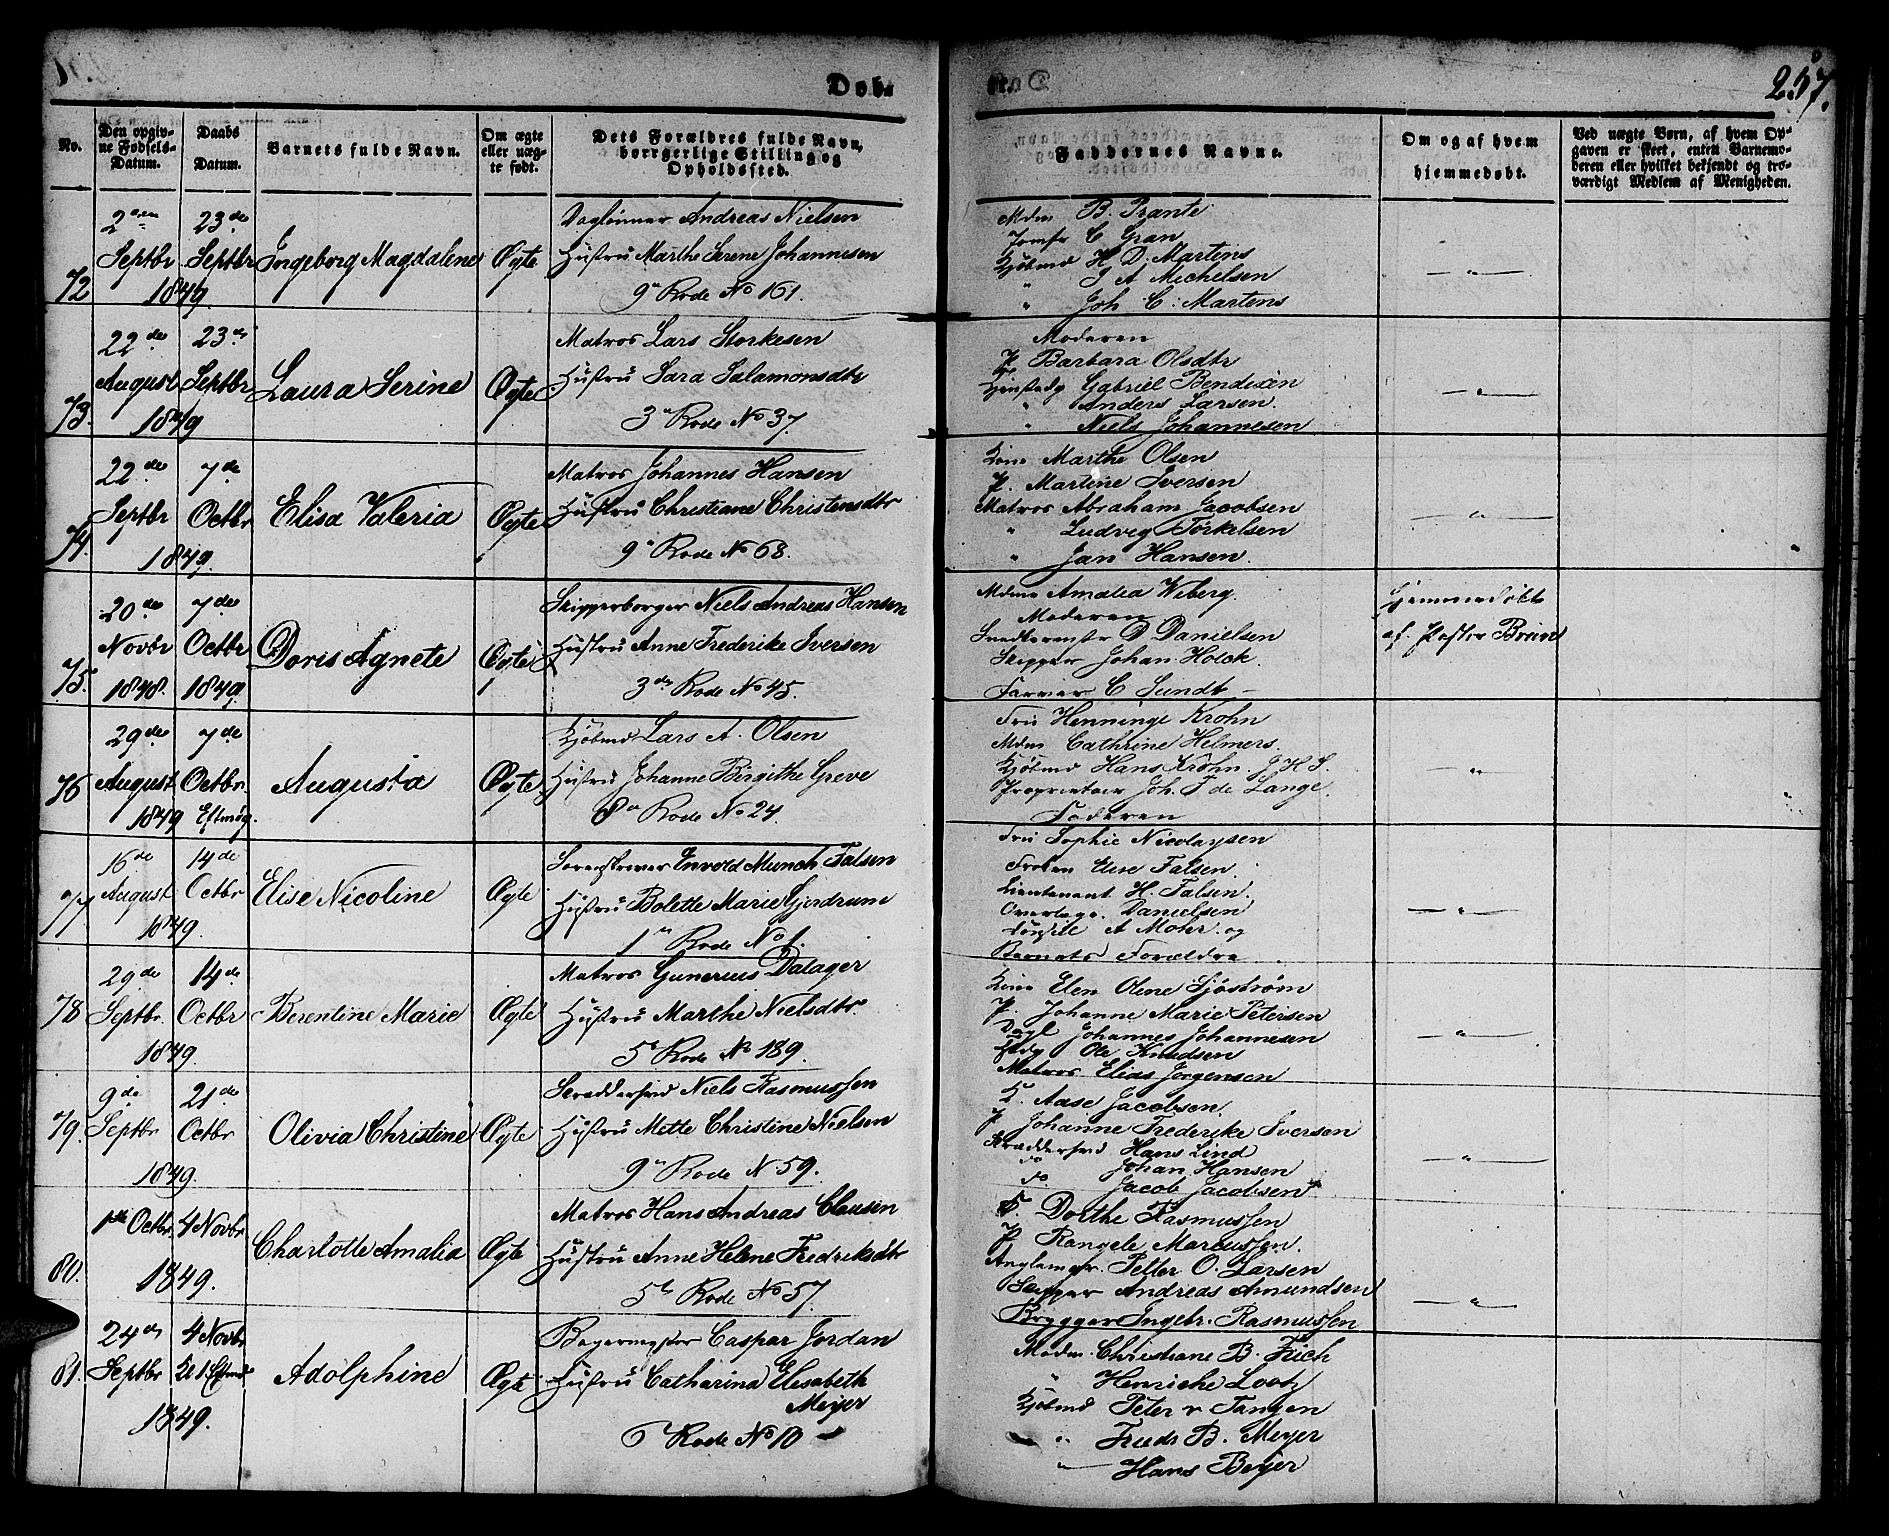 Døb-
257.
No.
Den opgiv-
ne Fødsels-
Datum.
Daabs
Datum.
Barnets fulde Navn.
Om ægte
eller uæg-
te født.
Dets Forældres fulde Navn,
borrgerlige Stilling og
Opholdssted.
Faddernes Navne.
Om og af hvem
hjemmedøbt.
Ved uægte Børn, af hvem Op-
gaven er skeet, enten Barnemo-
deren eller hvilket bekjendt og tro-
værdigt Medlem af Menigheden.
72
Septbr
23de
Septbr
1849.
Ingeborg Magdalene
Ægte
Dagleiner Andreas Nielsen
Hustru Marthe Serene Johannesen
9e Rode No 161.
Mdm B. Prante
Jomfr C Gran
Kjøbmd H. D. Martens
" J A Michelsen
" Joh. C. Martens
— " —
73.
22de
August
23de
Septbr
1849
Laura Serine
Ægte
Matros Lars Storkesen
Hustru Sara Salamonsdtr
3e Rode No 37.
Moderen
P. Barbara Olsdtr
Gabriel Bendixen
" Anders Larsen.
" Niels Johannesen
— " —
74.
22de
Septbr
7de
Octbr
1849.
Elisa Valeria
Ægte
Matros Johannes Hansen
Hustru Christiane Christensdtr
9e Rode No 68.
Kone Marthe Olsen
P. Martine Iversen
Matros Abraham Jacobsen
" Ludvig Torkelsen
" Jan Hansen.
— " —
75.
20de
Novbr
1848.
7de
Octbr
1849
Doris Agnete
Ægte
Skipperborger Niels Andreas Hansen
Hustru Anne Frederike Iversen
3de Rode No 45.
Mdme Amalia Wiberg.
Moderen
D Danielsen
Skipper Johan Holck.
Farver C Sundt —
Hjemmedøbt
af Pastor Bruun
76
29de
August
7de
Octbr.
1849 Eftmdg.
Augusta
Ægte
Kjøbmd Lars A. Olsen
Hustru Johanne Birgithe Greve
8de Rode No 24
Fru Henninge Krohn
Mdm Cathrine Helmers.
Kjøbmd Hans Krohn. J. H. S.
Proprietair Joh. F de Lange.
Faderen
— " —
77
16de
August
14de
Octbr
1849.
Elise Nicoline
Ægte
Sorenskriver Envold Munch Falsen
Hustru Bolette Marie Gjerdrum
1e Rode No 1.
Fru Sophie Nicolaysen
Frøken Elise Falsen.
Lieutenant H. Falsen.
Overlæge. Danielsen
A Mohr. og
Barnets Forældre
— " —
78
29de
Septbr.
14de
Octbr
1849.
Berentine Marie
Ægte
Matros Gunerius Dalager
Hustru Marthe Nielsdtr.
5e Rode No 189.
Kone Elen Olene Sjøstrøm
P. Johanne Marie Petersen
Dagl Johannes Johannesen
Ole Knudsen
Matros Elias Jørgensen
— " —
79.
9de
Septbr
21de
Octbr
1849.
Olivia Christine
Ægte
Skræddersvd Niels Rasmussen
Hustru Mette Christine Nielsen
9e Rode N 59.
K. Aase Jacobsen.
P Johanne Frederike Iversen
Skræddersvd Hans Lind
do Johan Hansen
do Jacob Jacobsen
— " —
80.
1ste Octbr
4 Novbr
1849.
Charlotte Amalia
Ægte
Matros Hans Andreas Clausen
Hustru Anne Helene Fredriksdtr
5te Rode No 57
K. Dorthe Rasmussen
P Rangele Marcussen.
Petter O. Larsen
Skipper Andreas Amundsen
Brygger Ingebr. Rasmussen
— " —
81.
24de
Septbr
4 Novbr
Kl 1 Eftmd
1849.
Adolphine
Ægte
Bagermester Caspar Jordan
Hustru Catharina Elisabeth
Meyer
6 Rode No 10 —
Madm. Christiane B. Frich
" Henriche Lootz
Kjøbmd Peter v Tangen
" Frieds B. Meyer
" Hans Beyer